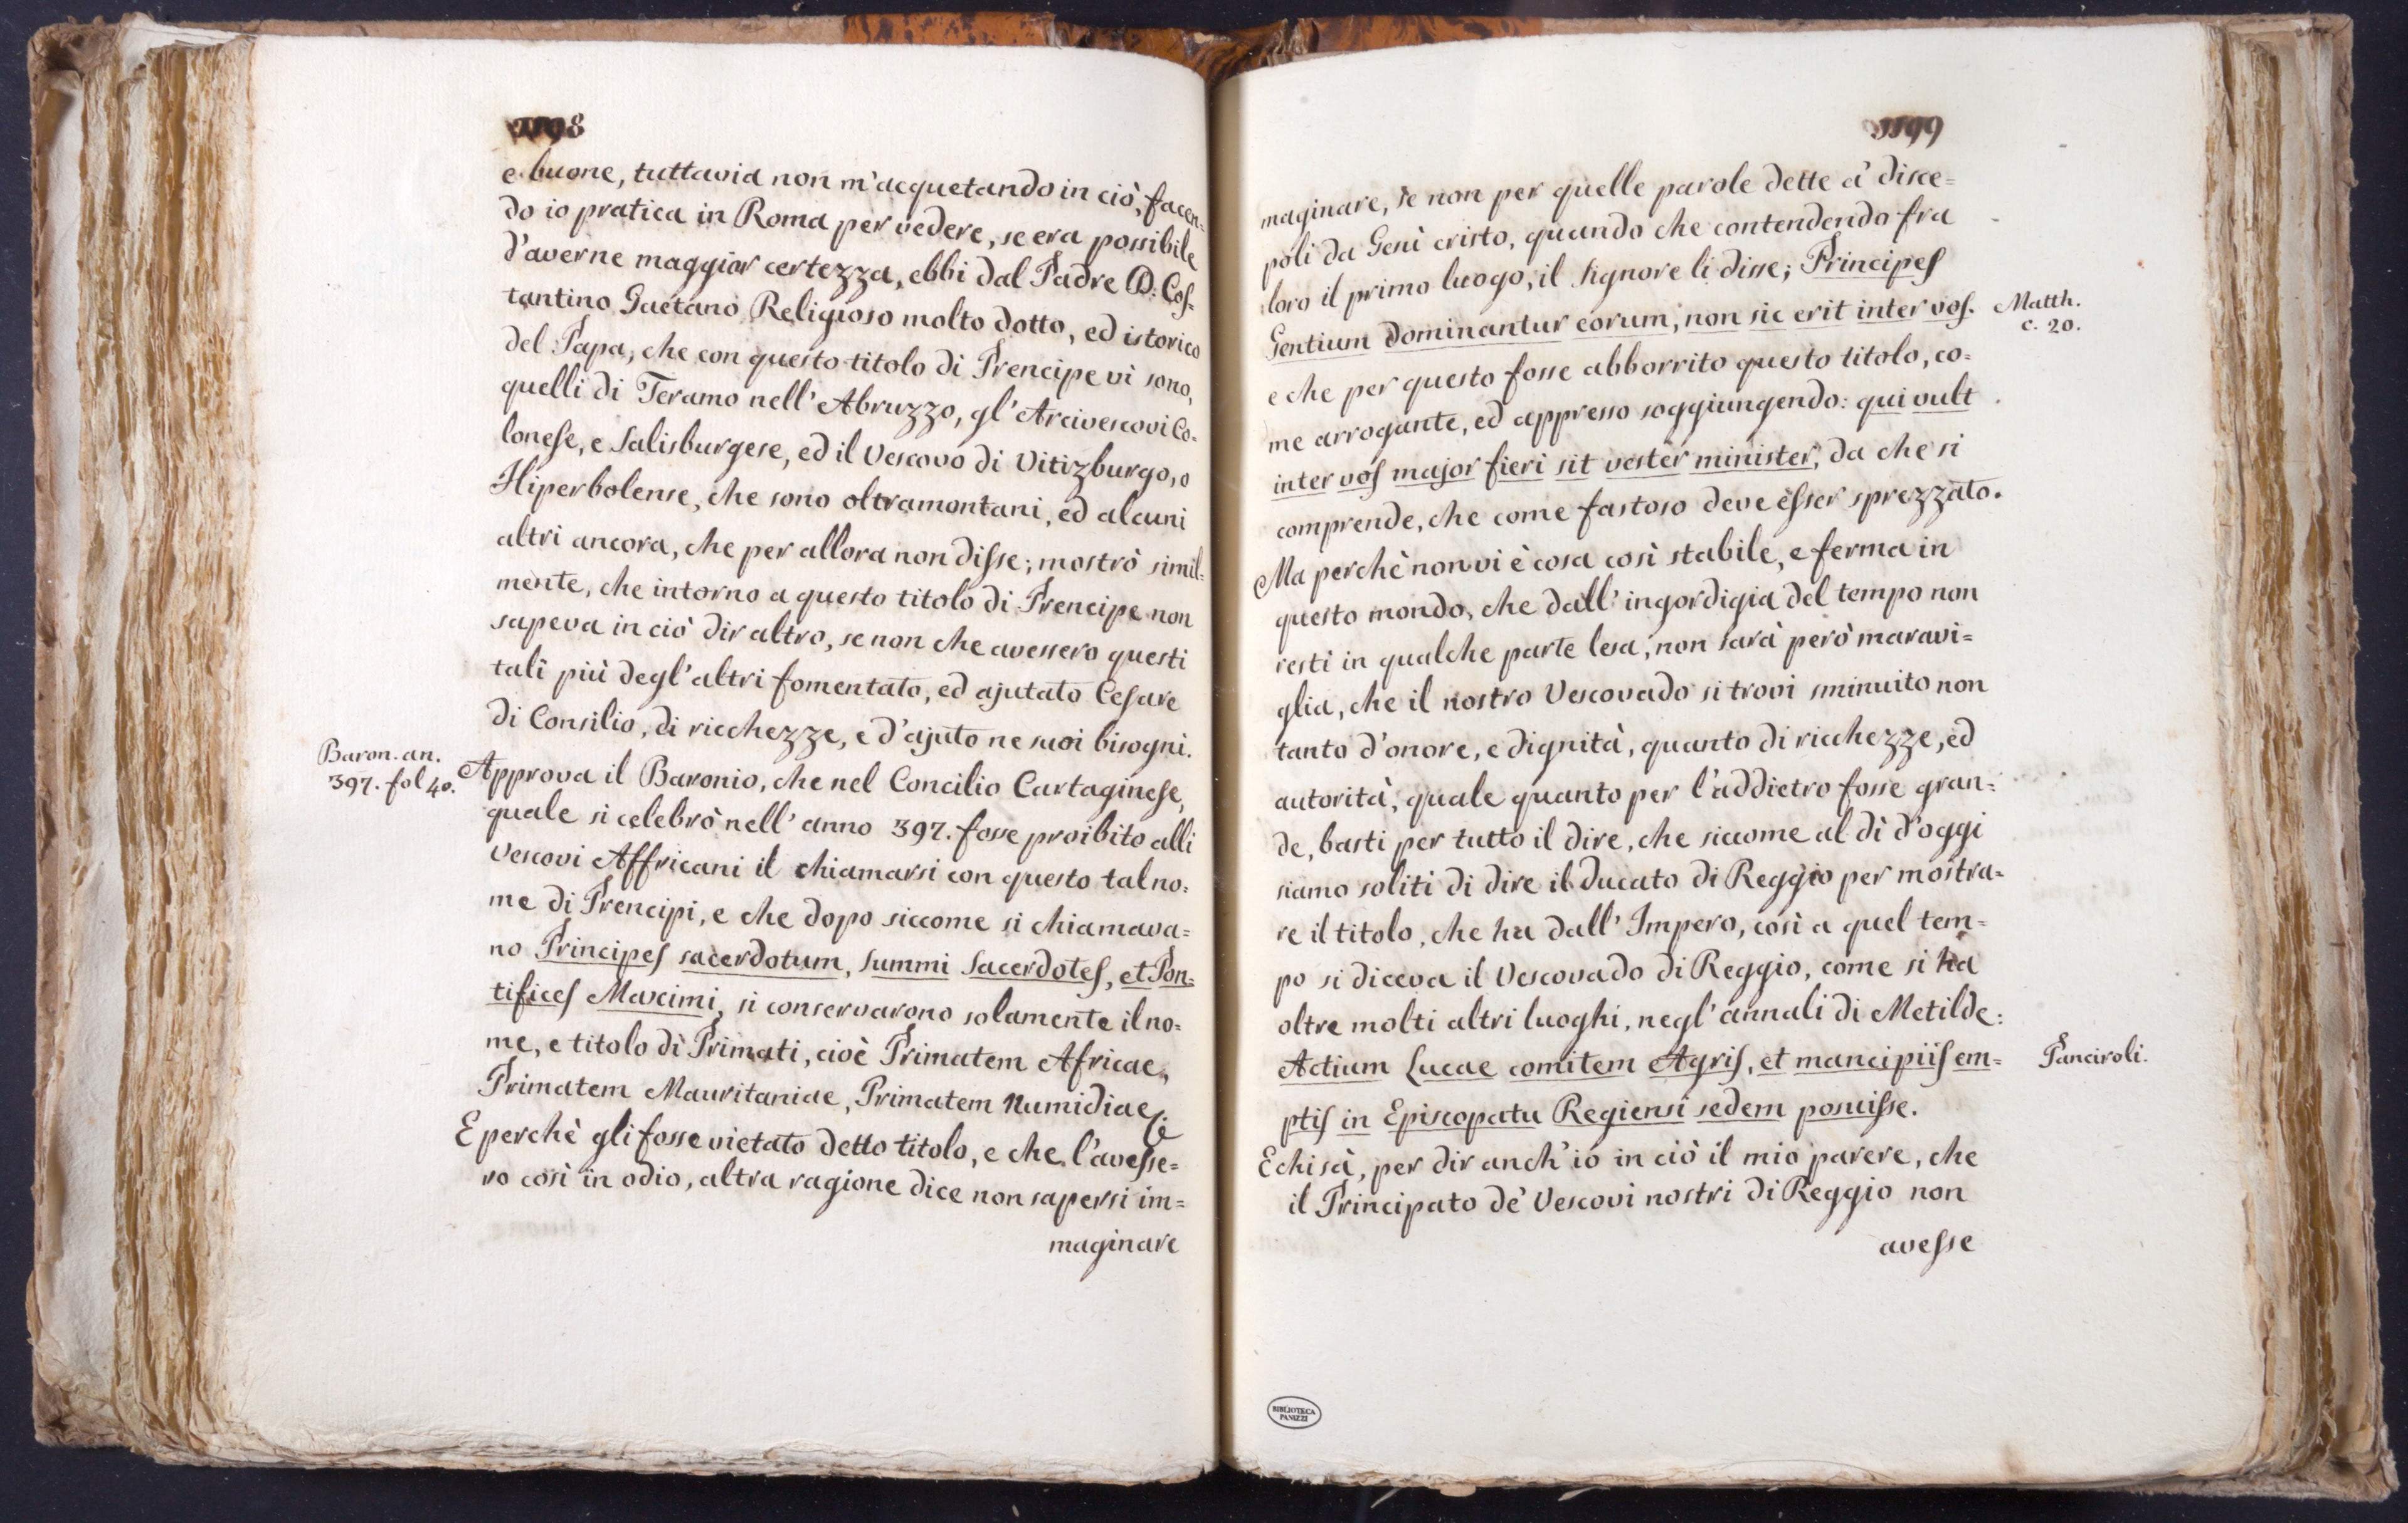 1198
e buone, tuttavia non m'acquetando in ciò, facen=
do io pratica in Roma per vedere, se era possibile
d'averne maggior certezza, ebbi dal Padre D: Cos=
tantino Gaetano Religioso molto dotto, ed istorico
del Papa, che con questo titolo di Prencipe vi sono,
quelli di Teramo nell'Abruzzo, gl'Arcivescovi Co=
lonese, e Salisburgese, ed il Vescovo di Vitizburgo, o
Hiperbolense, che sono oltramontani, ed alcuni
altri ancora, che per allora non disse; mostrò simil=
mente, che intorno a questo titolo di Prencipe non
sapeva in ciò dir altro, se non che avessero questi
tali più degl'altri fomentato, ed ajutato Cesare
di Consilio, di ricchezze, e d'ajuto ne suoi bisogni.
Baron. an.
397. fol 40.
Approva il Baronio, che nel Concilio Cartaginese,
quale si celebrò nell'anno 397. fosse proibito alli
Vescovi Affricani il chiamarsi con questo tal no=
me di Prencipi, e che dopo siccome si chiamava=
no Principes sacerdotum, summi Sacerdotes, et Pon=
tifices Maximi, si conservarono solamente il no=
me, e titolo di Primati, cioè Primatem Africae,
Primatem Mauritaniae, Primatem Numidiae.
E perchè gli fosse vietato detto titolo, e che l'avesse=
ro così in odio, altra ragione dice non sapersi im=
maginare
1199
maginare, se non per quelle parole dette a' disce=
poli da Gesù cristo, quando che contendendo fra
loro il primo luogo, il Signore li disse; Principes
Gentium dominantur eorum, non sic erit inter vos.
Matth.
c. 20.
e che per questo fosse abborrito questo titolo, co=
me arrogante, ed appresso soggiungendo: qui vult
inter vos major fieri sit vester minister, da che si
comprende, che come fastoso deve esser sprezzato.
Ma perchè non vi è cosa così stabile, e ferma in
questo mondo, che dall'ingordigia del tempo non
resti in qualche parte lesa, non sarà però maravi=
glia, che il nostro Vescovado si trovi sminuito non
tanto d'onore, e dignità, quanto di ricchezze, ed
autorità, quale quanto per l'addietro fosse gran=
de, basti per tutto il dire, che siccome al dì d'oggi
siamo soliti di dire il ducato di Reggio per mostra=
re il titolo, che ha dall'Impero, così a quel tem=
po si diceva il Vescovado di Reggio, come si ha
oltre molti altri luoghi, negl'annali di Metilde:
Actium Lucae comitem Agris, et mancipiis em=
Panciroli.
ptis in Episcopatu Regiensi sedem posuisse.
E chi sà, per dir anch'io in ciò il mio parere, che
il Principato de' Vescovi nostri di Reggio non
avesse
BIBLIOTECA
PANIZZI